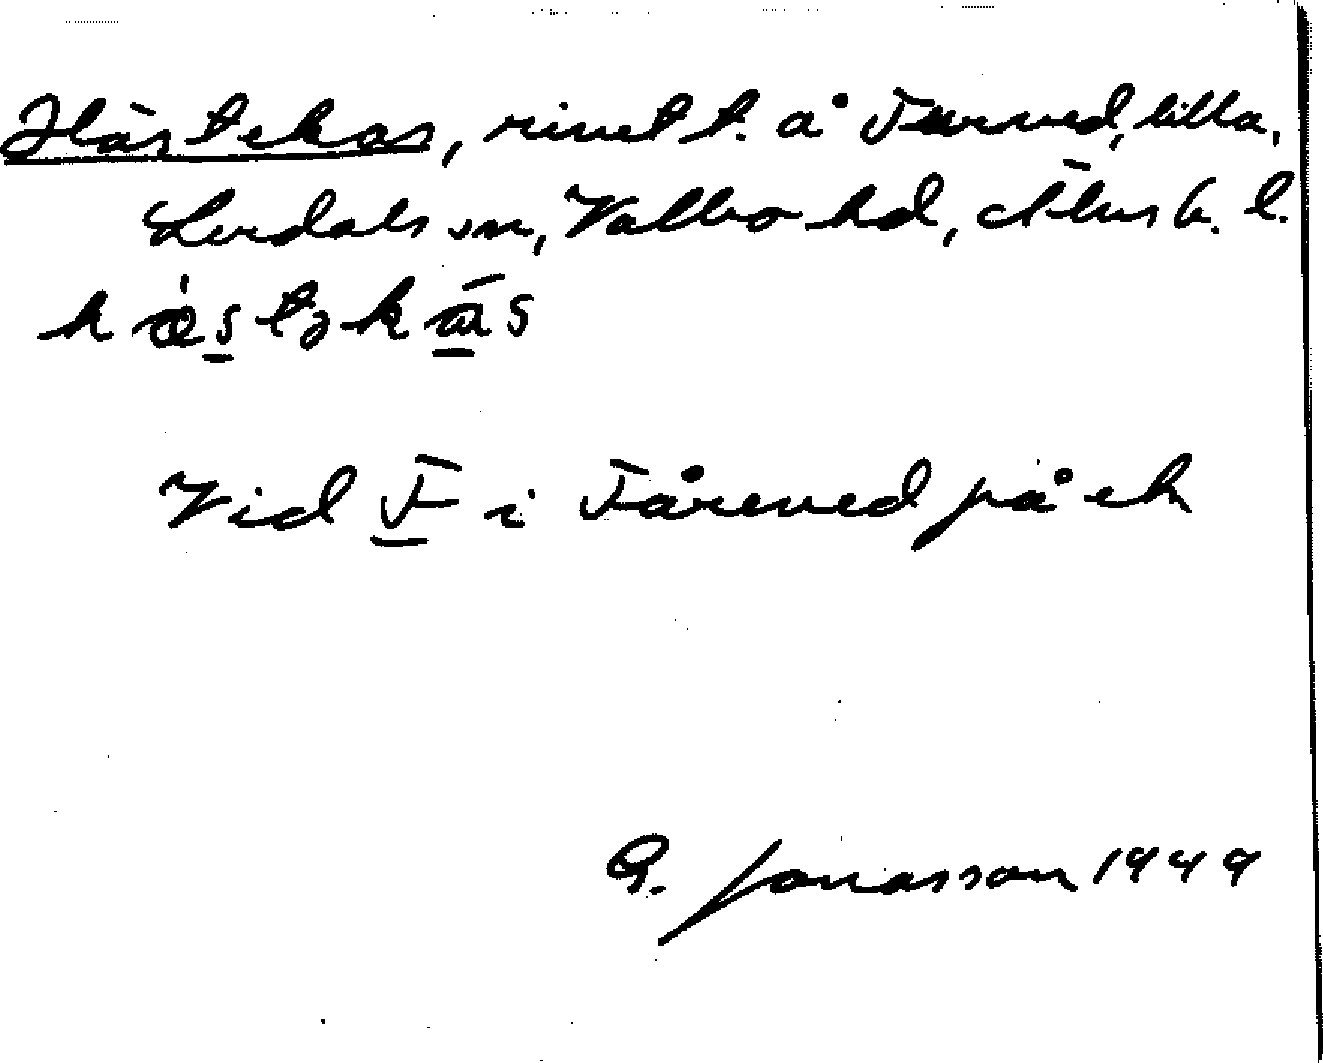 Hästekas, rivet t. å Furved, lilla,
Lerdals sn, Valbo hd, Älvsb. l.
hæstəkás
Vid F i Fåreved på ek
G. Jonasson 1949